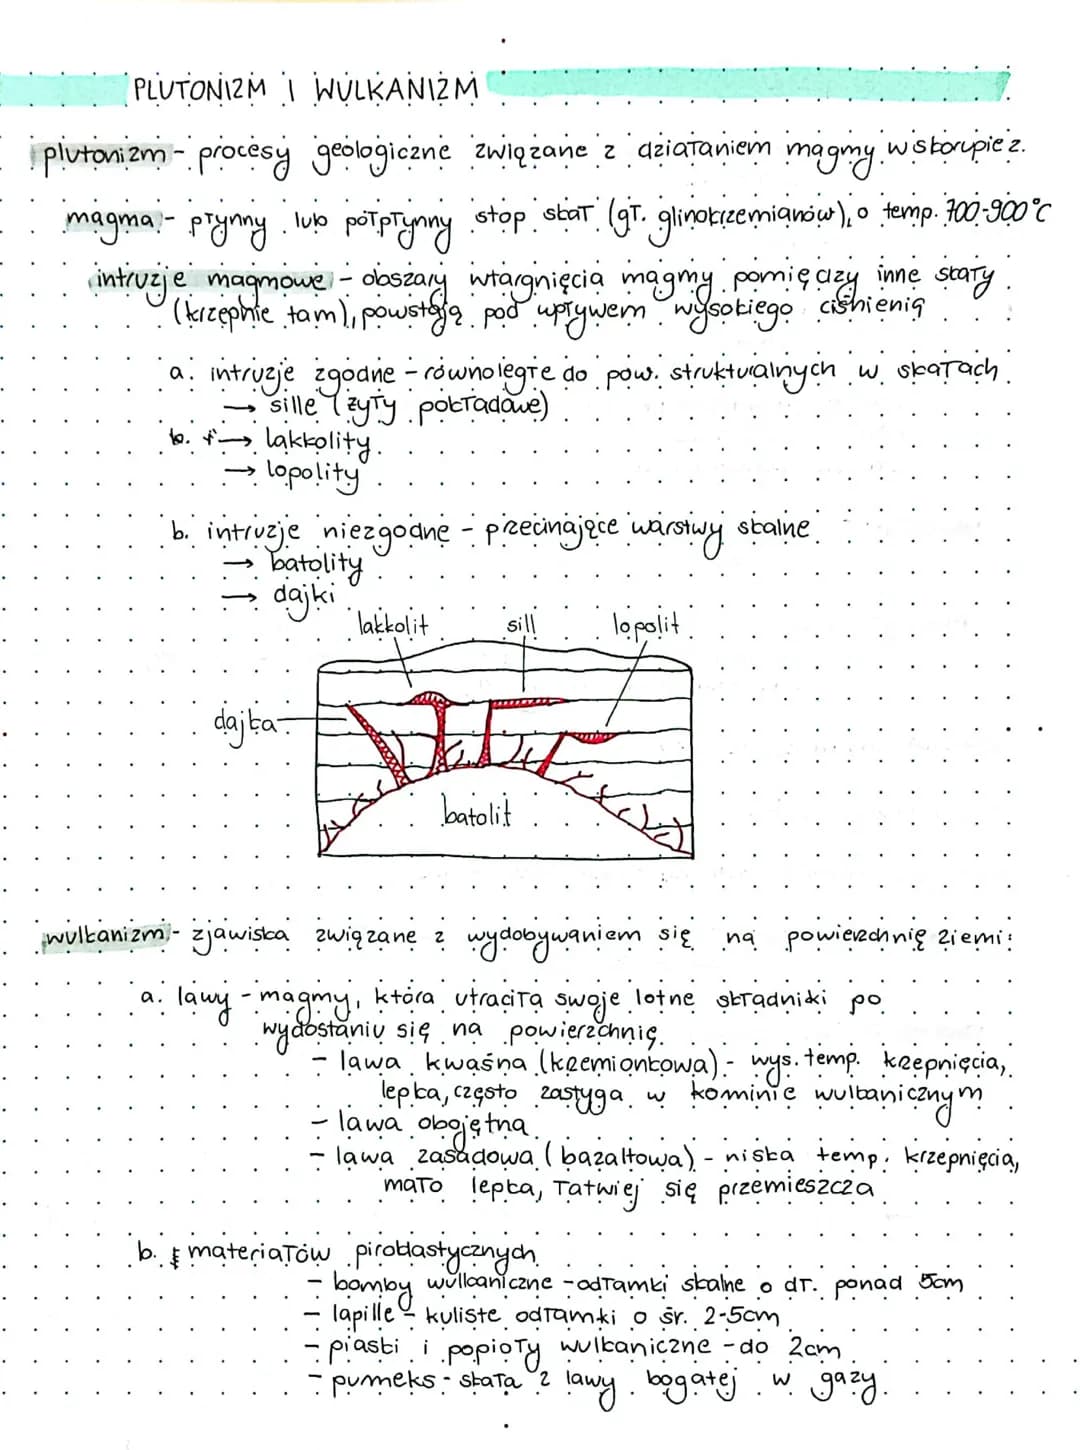 PLUTONIZM I WULKANIZM
plutonizm - procesy geologiczne związane z działaniem magmy w skorupie z.
magma - płynny lub półpłynny stop skał (gł. glinokrzemianów), o temp. 700-900°C
intruzje magmowe - obszary wtargnięcia magmy pomięczy inne skały
(krzepnie tam), powstają pod wpływem wysokiego ciśnienia
a. intruzje zgodne - równoległe do pow. strukturalnych w skałach
→ sille (żyły pokładowe)
b. → lakkolity
→ lopolity
b. intruzje niezgodne - przecinające warstwy skalne
→ batolity
→ dajki
lakkolit sill lopolit
dajka
batolit
wulkanizm - zjawiska związane z wydobywaniem się na powierzchnię ziemi:
a. lawy - magmy, która utraciła swoje lotne składniki po
wydostaniu się na powierzchnię
- lawa kwaśna (krzemionkowa) - wys. temp. krzepnięcia,
lepka, często zastyga w kominie wulkanicznym
- lawa obojętna
- lawa zasadowa (bazaltowa) - niska temp. krzepnięcia,
mało lepka, łatwiej się przemieszcza
b. materiałów piroklastycznych
- bomby wulkaniczne - odłamki skalne o dł. ponad 5cm
- lapille - kuliste odłamki o śr. 2-5cm
- piaski i popioły wulkaniczne - do 2cm
- pumeks - skała z lawy bogatej w gazy